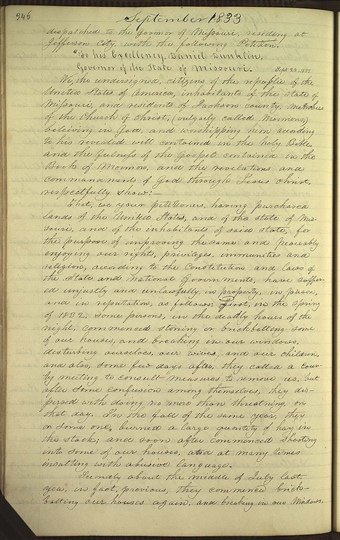 346
September 1833
dispatched to the Govenor of Missouri, residing at
Jefferson City, with the following Petition.
"To his Excellency, Daniel Dunklin,
Govenor of the State of Missouri.
We, the undersigned, citizens of the republic of the
United States of America, inhabitants of the state of
Missouri, and residents of Jackson county, members
of the Church of Christ, (vulgarly called Mormons)
believing in God, and worshipping him according
to his revealed will contained in the Holy Bible
and the fulness of the Gospel contained in the
Book of Mormon, and the revelations and
commandments of God through Jesus Christ,
respectfully show:—
That, we your petitioners, having purchased
lands of the United States, and of the state of Mis-
souri, and of the inhabitants of said state, for
the purpose of improving the same and peaceably
enjoying our rights, privileges, immunities and
religion, according to the Constitution and laws of
the State and National Governments, have suffer-
ed unjustly and unlawfully in property, in person,
and in reputation, as follows: First, in the spring
of 1832 some persons, in the deadly hours of the
night, commenced stoning or brickbatting some
of our houses, and breaking in our windows,
disturbing ourselves, our wives, and our children
and also, some few days after, they called a coun-
ty meeting to consult measures to remove us, but
after some confusion among themselves, they dis-
persed with doing no more than threatning, on
that day. In the fall of the same year, they
or some one, burned a large quantity of hay in
the stack, and soon after commenced shooting
into some of our houses, and at many times
insulting with abusive language.
Secondly about the middle of July last
year, in fact, previous, they commenced brick-
batting our houses again, and breaking in our windows.